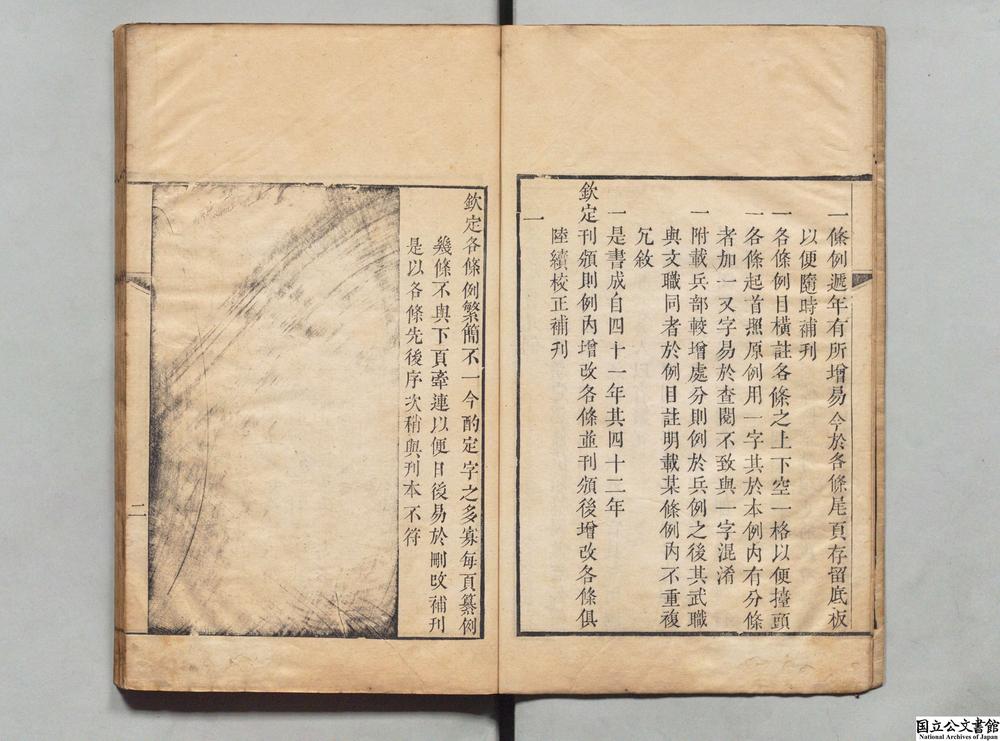 一條例遞年有所增易今於各條尾頁存留底板
以便隨時補刊
一各條例目橫註各條之上下空一格以便擡頭
一各條起首照原例用一字其於本例內有分條
者加一又字易於查閱不致與一字混淆
一附載兵部較增處分則例於兵例之後其武職
與文職同者於例目註明載某條例內不重複
冗敘
一是書成自四十一年其四十二年
欽定刊頒則例內增改各條並刊頒後增改各條俱
陸續校正補刊
一
欽定各條例繁簡不一今酌定字之多寡每頁纂例
幾條不與下頁牽連以便日後易於刪改補刊
是以各條先後序次稍與刊本不符
二
国立公文書館
National Archives of Japan